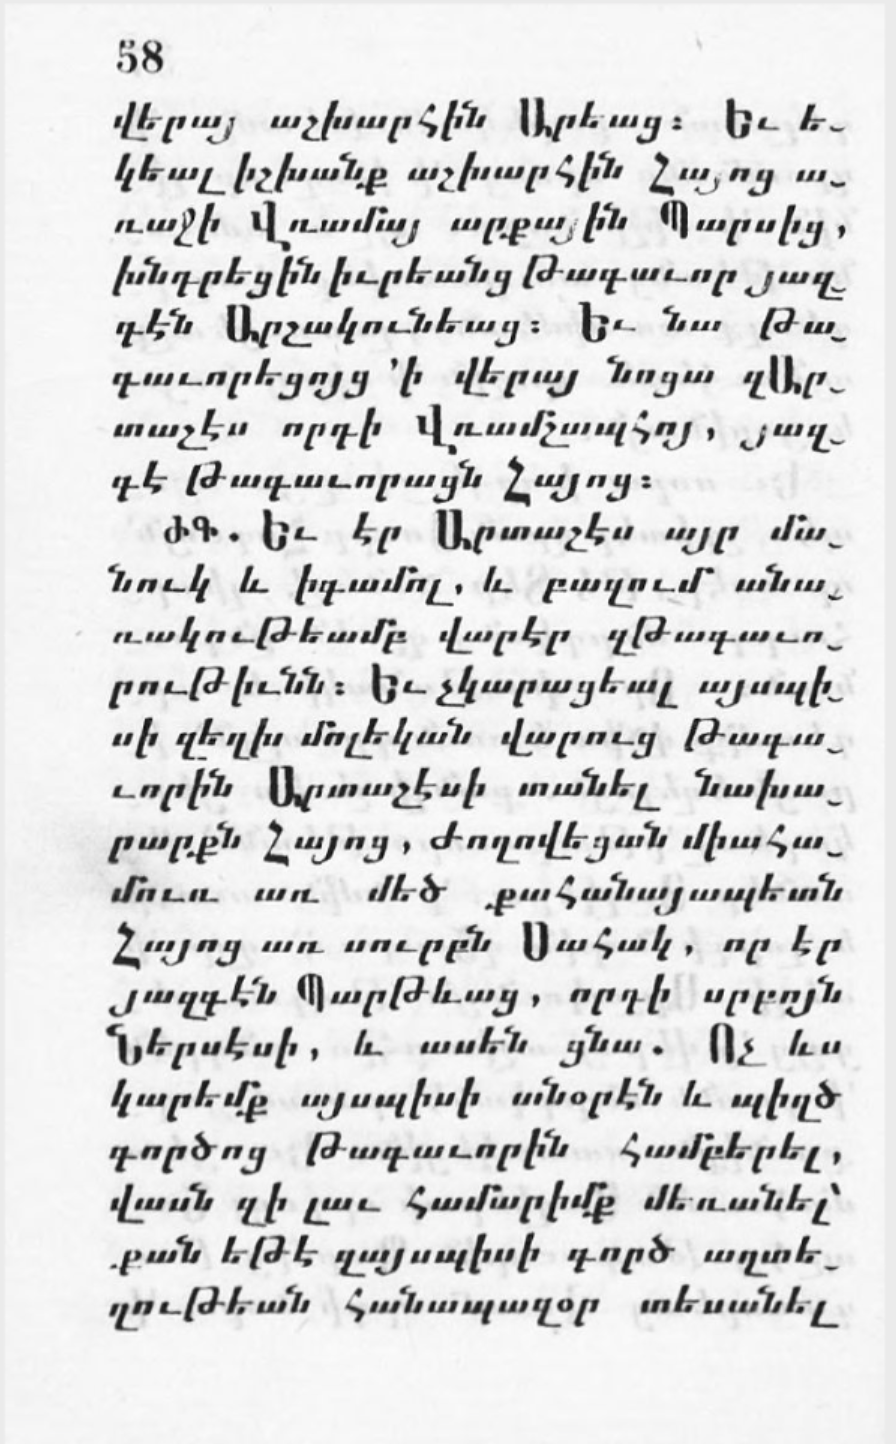 58
վերայ աշխարհին Արեաց։ Եւ ե֊
կեալ իշխանք աշխարհին Հայոց ա֊
ռաջի Վռամայ արքային Պարսից,
խնդրեցին իւրեանց թագաւոր յազ֊
գէն Արշակունեաց։ Եւ նա թա֊
գաւորեցոյց ՚ի վերայ նոցա զԱր֊
տաշէս որդի Վռամշապհոյ, յազ֊
գէ թագաւորացն Հայոց։
ԺԳ. Եւ էր Արտաշէս այր մա֊
նուկ և իգամոլ, և բազում անա֊
ռակութեամբ վարէր զթագաւո֊
րութիւնն։ Եւ չկարացեալ այսպի֊
սի զեղխ մոլեկան վարուց թագա֊
ւորին Արտաշէսի տանել նախա֊
րարքն Հայոց, ժողովեցան միահա֊
մուռ առ մեծ քահանայապետն
Հայոց առ սուրբն Սահակ, որ էր
յազգէն Պարթևաց, որդի սրբոյն
Ներսէսի, և ասեն ցնա. Ոչ ևս
կարեմք այսպիսի անօրէն և պիղծ
գործոց թագաւորին համբերել,
վասն զի լաւ համարիմք մեռանել՝
քան եթէ զայսպիսի գործ աղտե֊
ղութեան հանապազօր տեսանել